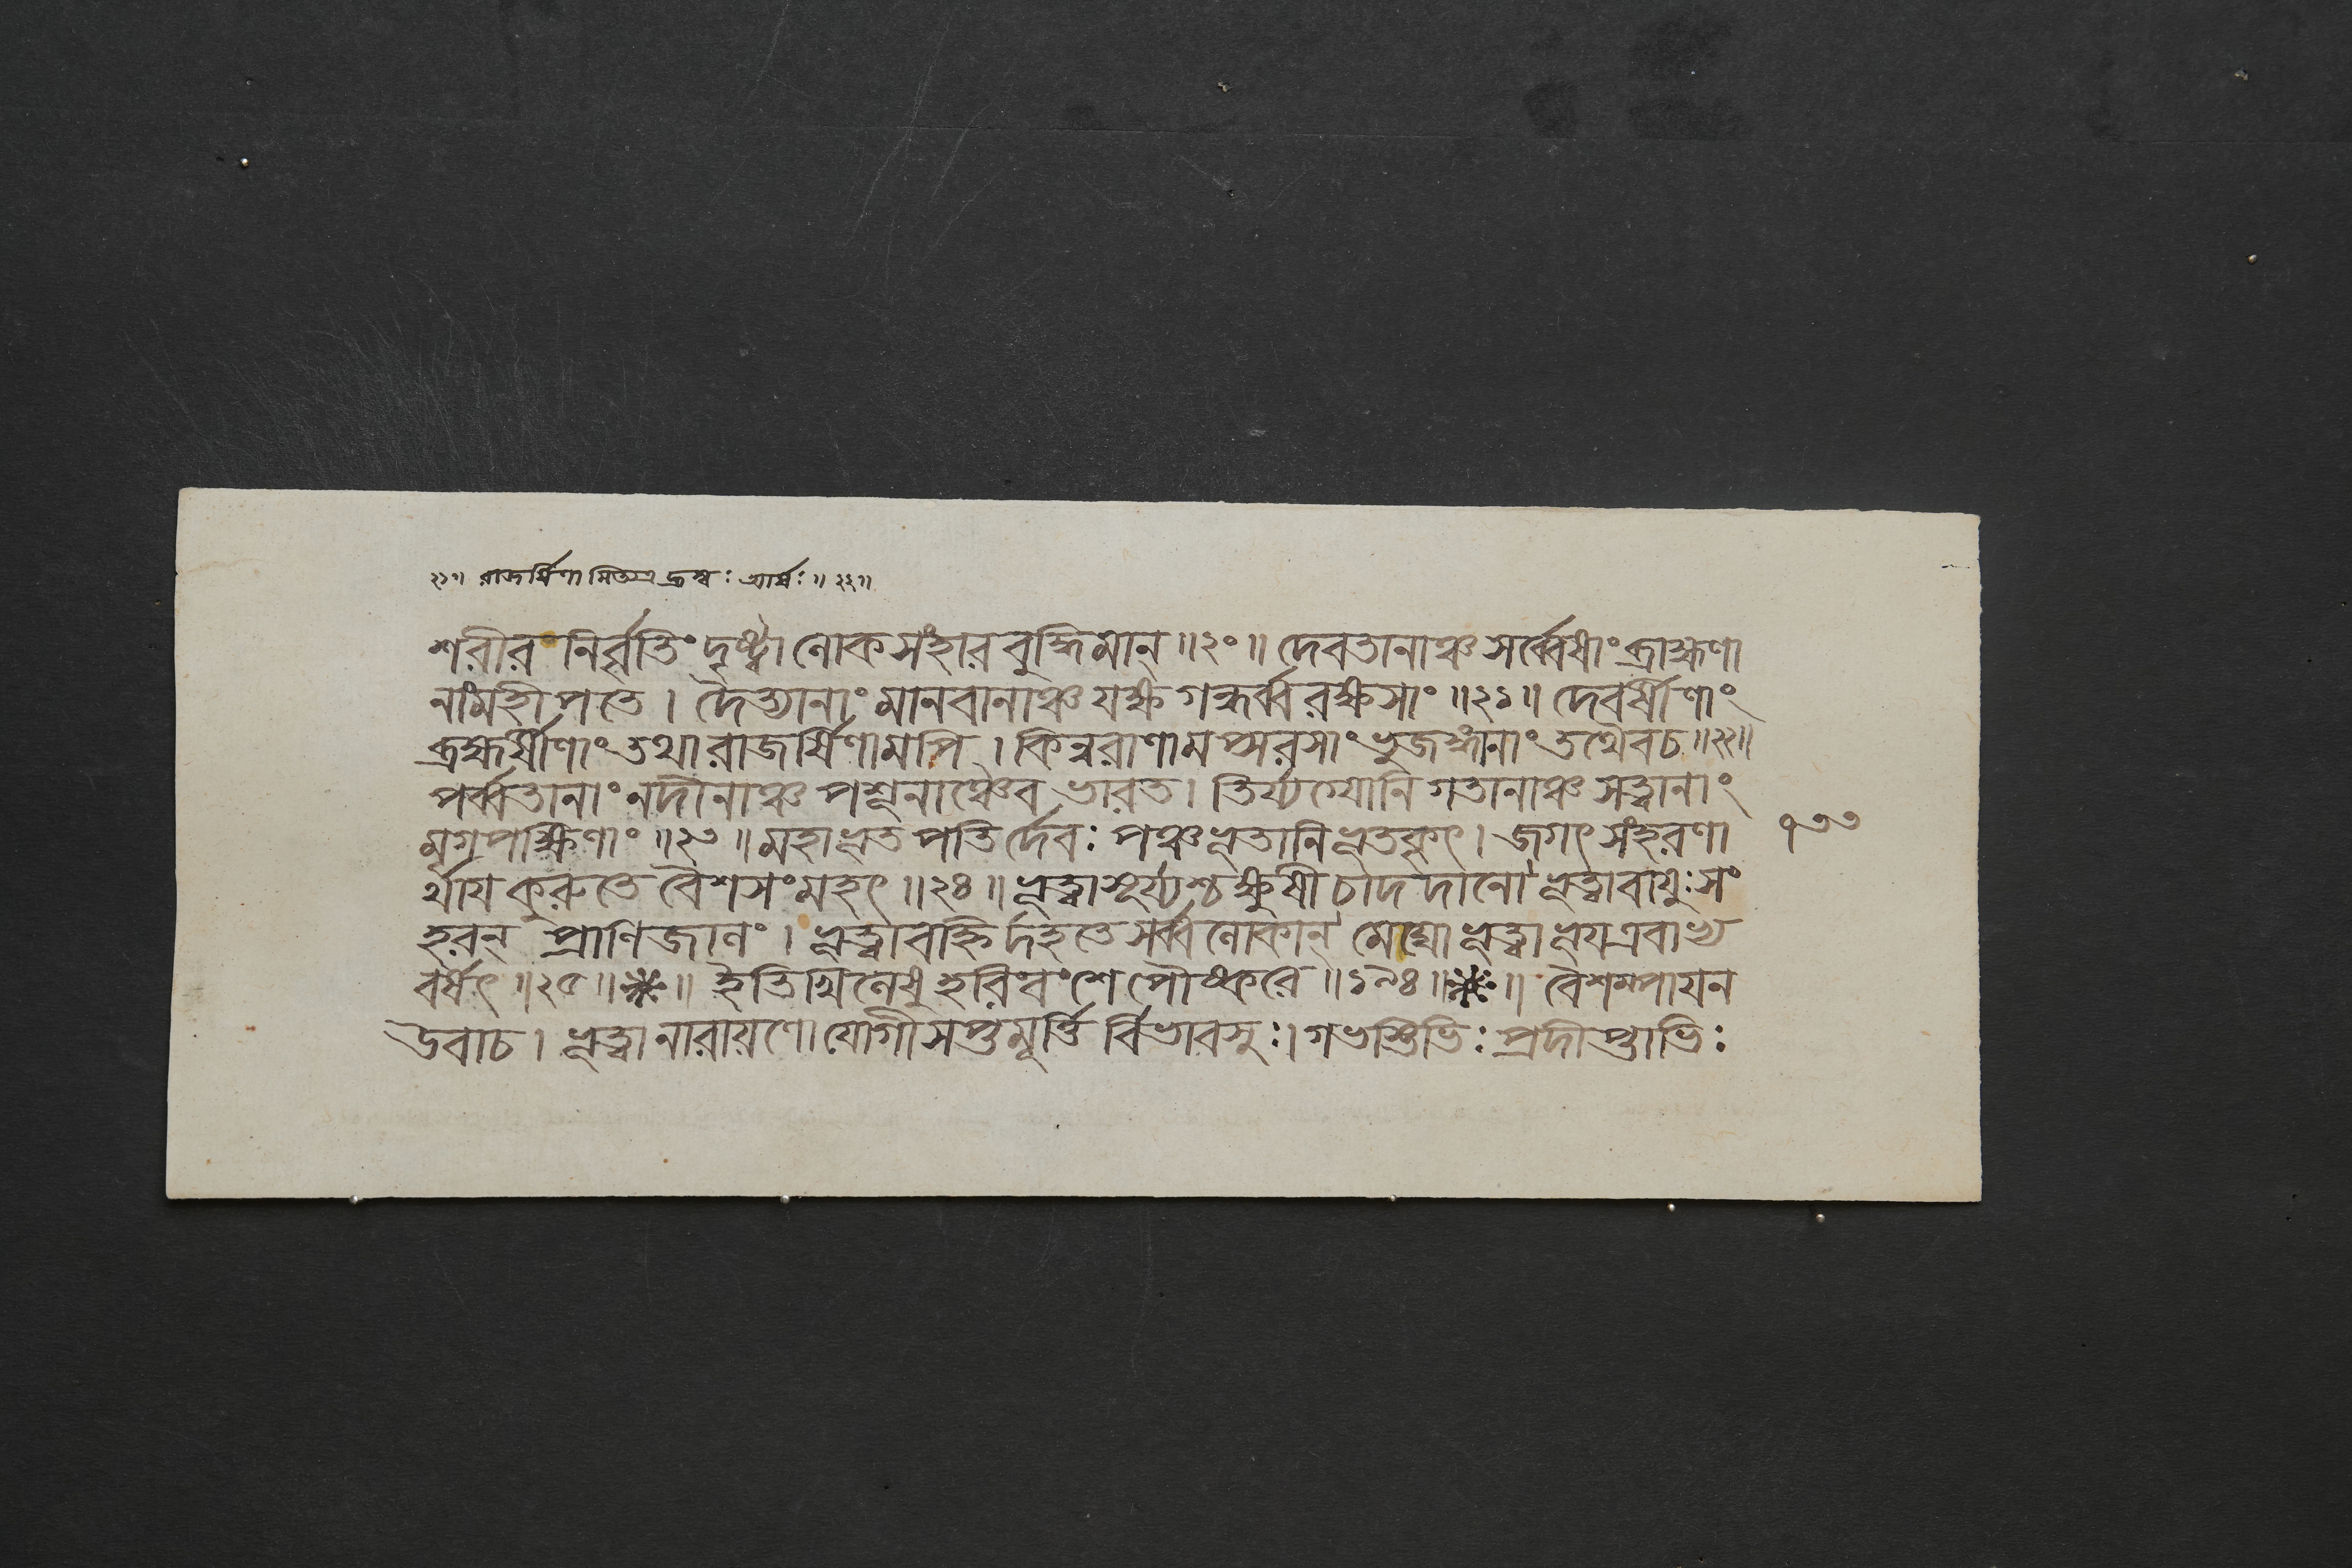 ২১॥ রাজর্ষিণামিত্যত্র হ্রস্বঃ আর্ষঃ॥২২॥
শরীর নির্বৃত্তিং দৃষ্ট্বা লোকসংহারবুদ্ধিমান্॥২০॥ দেবতানাঞ্চ সর্ব্বেষাং ব্রাহ্মণা
নাংমহীপতে। দৈত্যানাং মানবানাঞ্চ যক্ষগন্ধর্ব্বরক্ষসাং॥২১॥ দেবর্ষীণাং
ব্রহ্মর্ষীণাং তথা রাজর্ষিণামপি। কিন্নরাণামপ্সরসাং ভুজঙ্গানাং তথৈবচ॥২২॥
পর্ব্বতানাং নদীনাঞ্চ পশূনাঞ্চৈব ভারত। তির্য্যগ্যোনি গতানাঞ্চ সত্ত্বানাং
মৃগপক্ষিণাং॥২৩॥ মহাভূতপতির্দেবঃ পঞ্চভূতানি ভূতকৃৎ। জগৎসংহরণা
র্থায় কুরুতে বৈশসংমহৎ॥২৪॥ ভূত্বাসূর্য্যশ্চক্ষুষী চাদদানো ভূত্বাবায়ুঃসং
হরন্ প্রাণিজাতং। ভূত্বাবহ্নির্দহতে সর্ব্বলোকান্ মেঘো ভূত্বা ভূয়এবাভ্য
বর্ষৎ॥২৫॥ ইতিখিলেষু হরিবংশে পৌষ্করে॥১৯৪॥ বৈশম্পায়ন
উবাচ। ভূত্বানারায়ণো যোগী সপ্তমূর্ত্তি র্বিভাবসুঃ। গভস্তিভিঃ প্রদীপ্তাভিঃ
৭৩৩